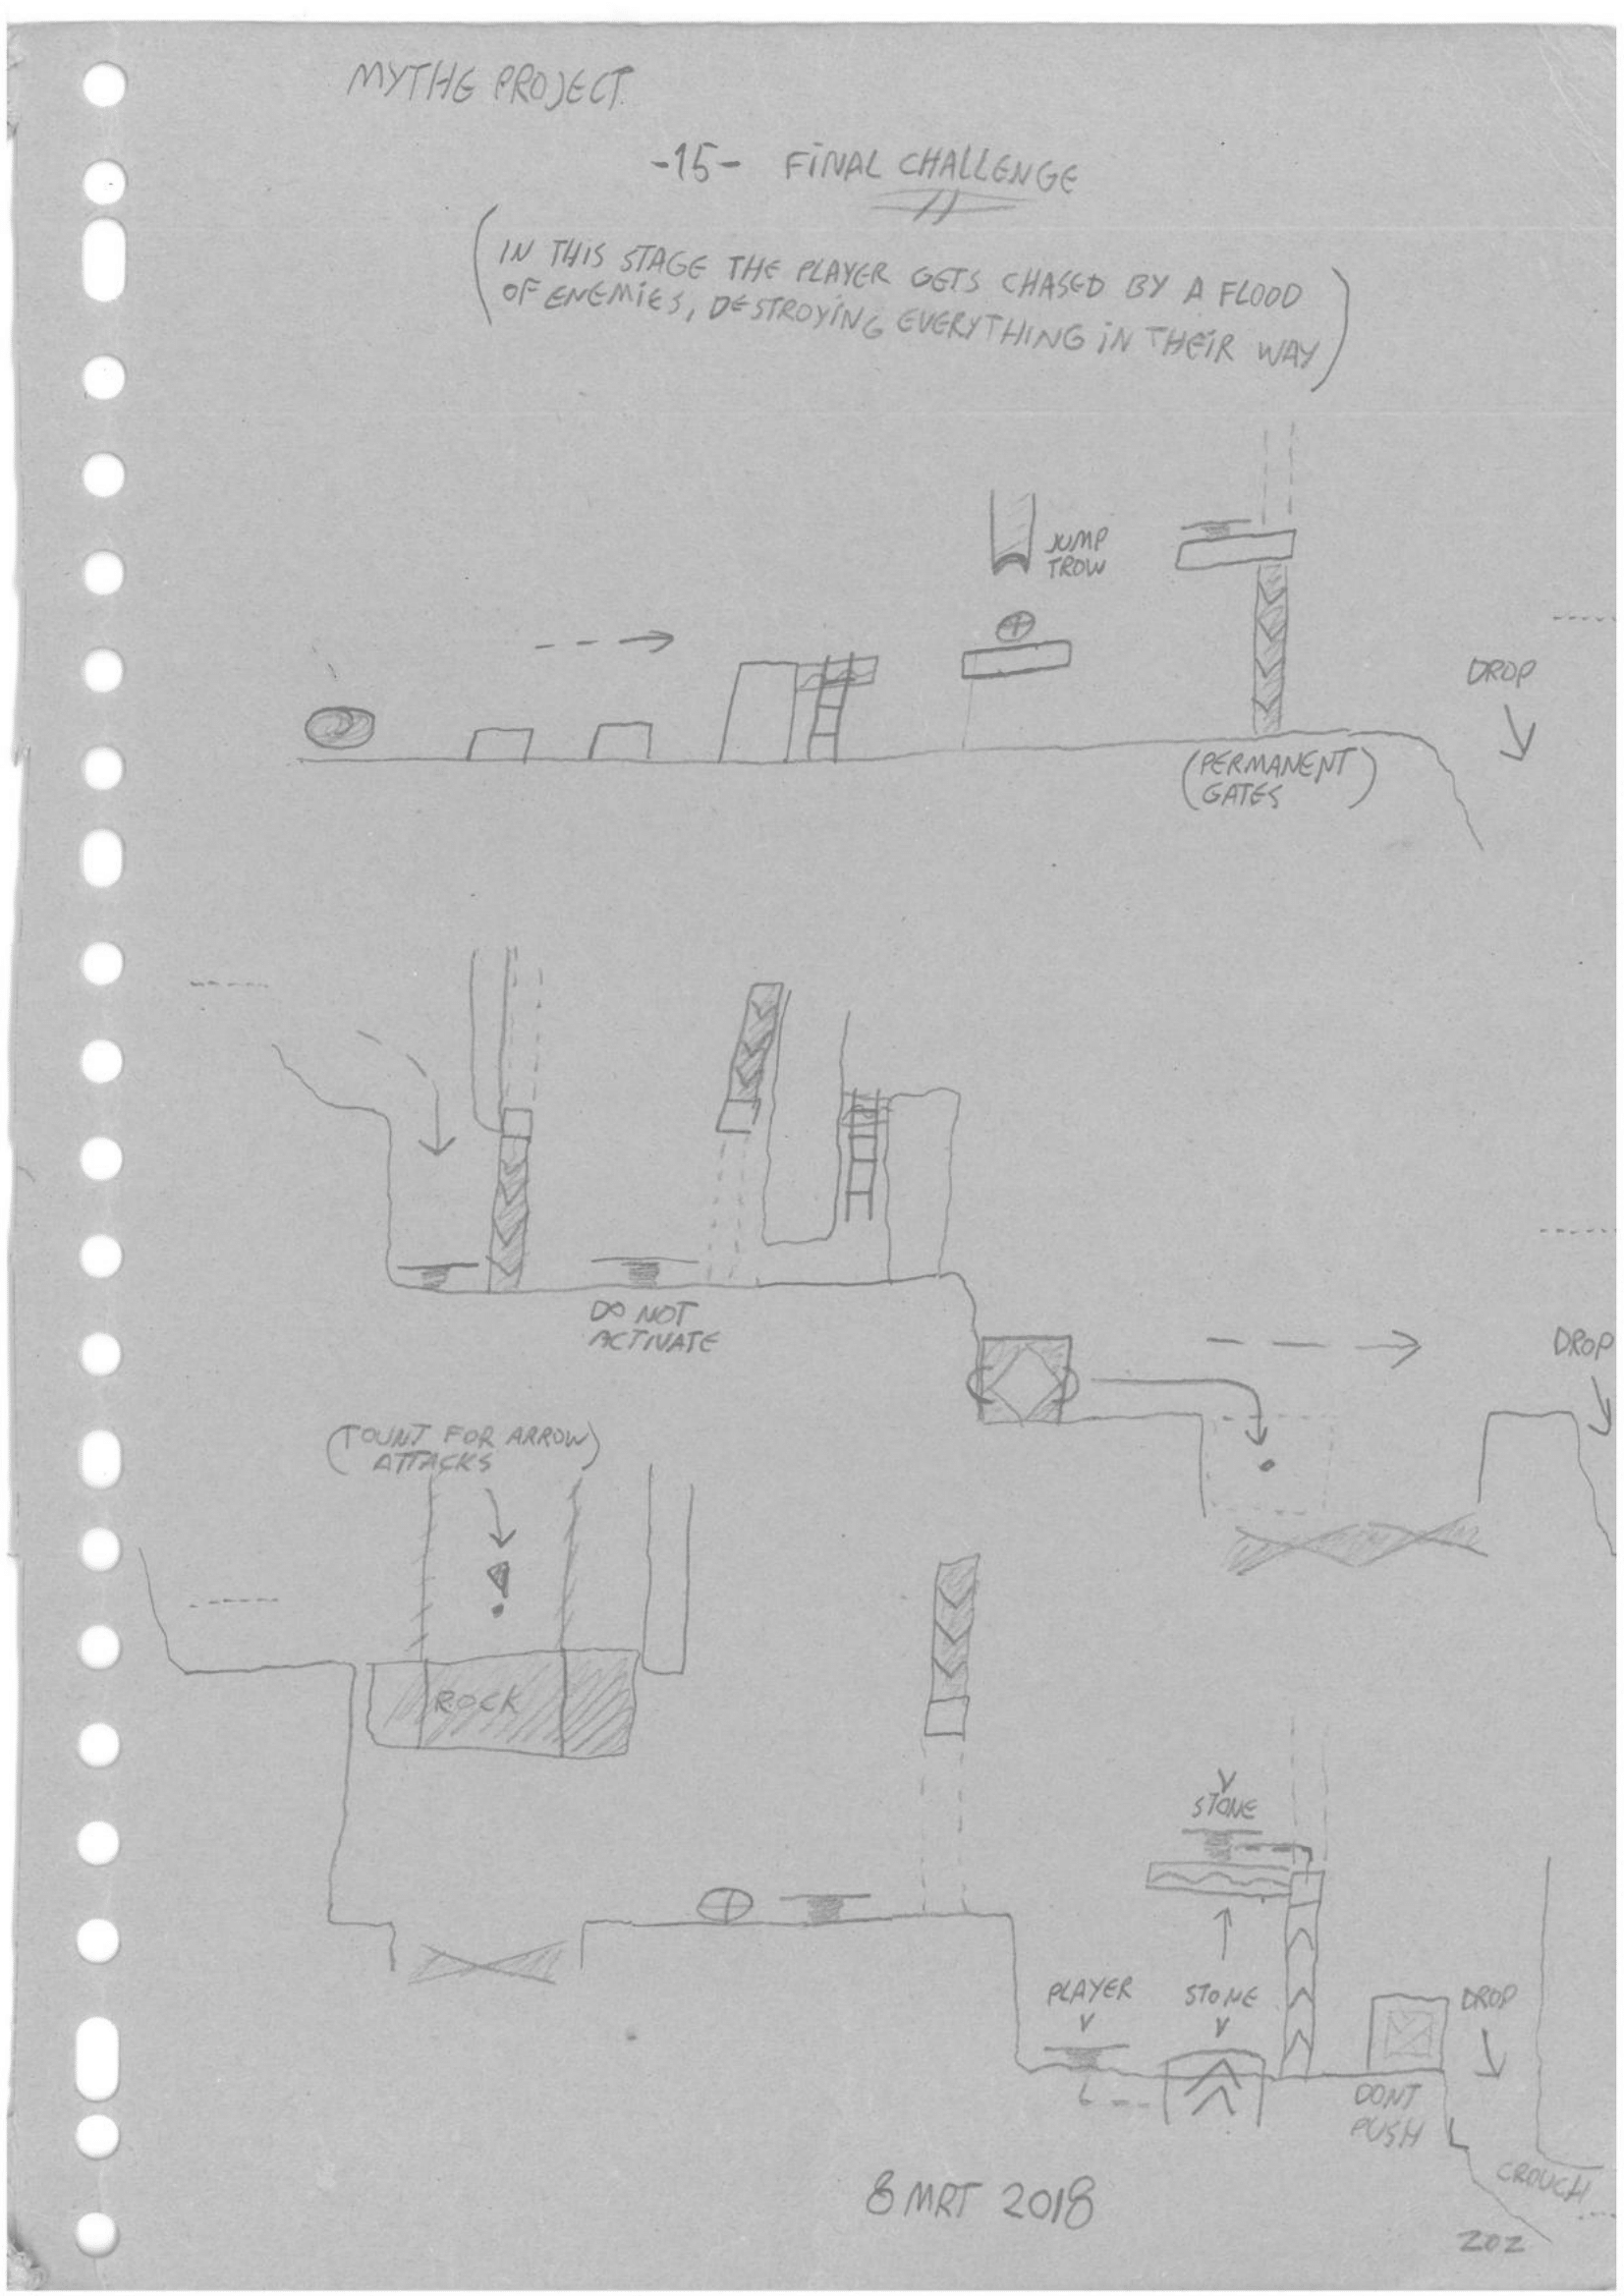 MYTHE PROJECT.
-15- FINAL CHALLENGE
(IN THIS STAGE THE PLAYER GETS CHASED BY A FLOOD
OF ENEMIES, DESTROYING EVERYTHING IN THEIR WAY)
JUMP
TROW
DROP
(PERMANENT
GATES)
DO NOT
ACTIVATE
DROP
(TOUNT FOR ARROW
ATTACKS)
ROCK
STONE
PLAYER
STONE
DROP
DONT
PUSH
CROUCH
8 MRT 2018
202